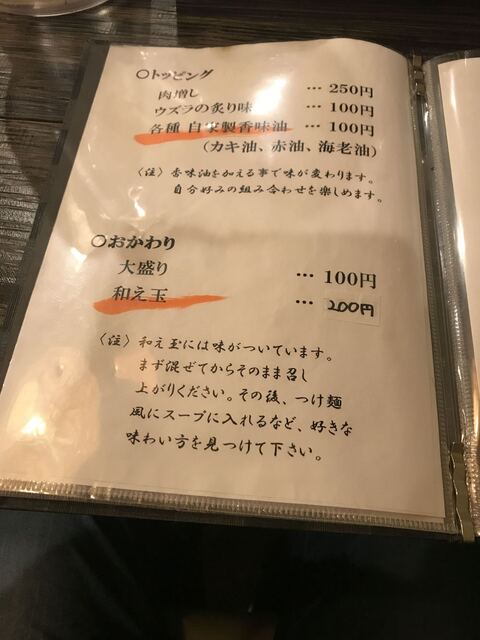 〇トッピング
肉増し … 250円
ウズラの炙り味 … 100円
各種 自家製香味油 … 100円
(カキ油、赤油、海老油)
〈注〉香味油を加える事で味が変わります。
自分好みの組み合わせを楽しめます。
〇おかわり
大盛り … 100円
和え玉 … 200円
〈注〉和え玉には味がついています。
まず混ぜてからそのまま召し
上がりください。その後、つけ麺
風にスープに入れるなど、好きな
味わい方を見つけて下さい。